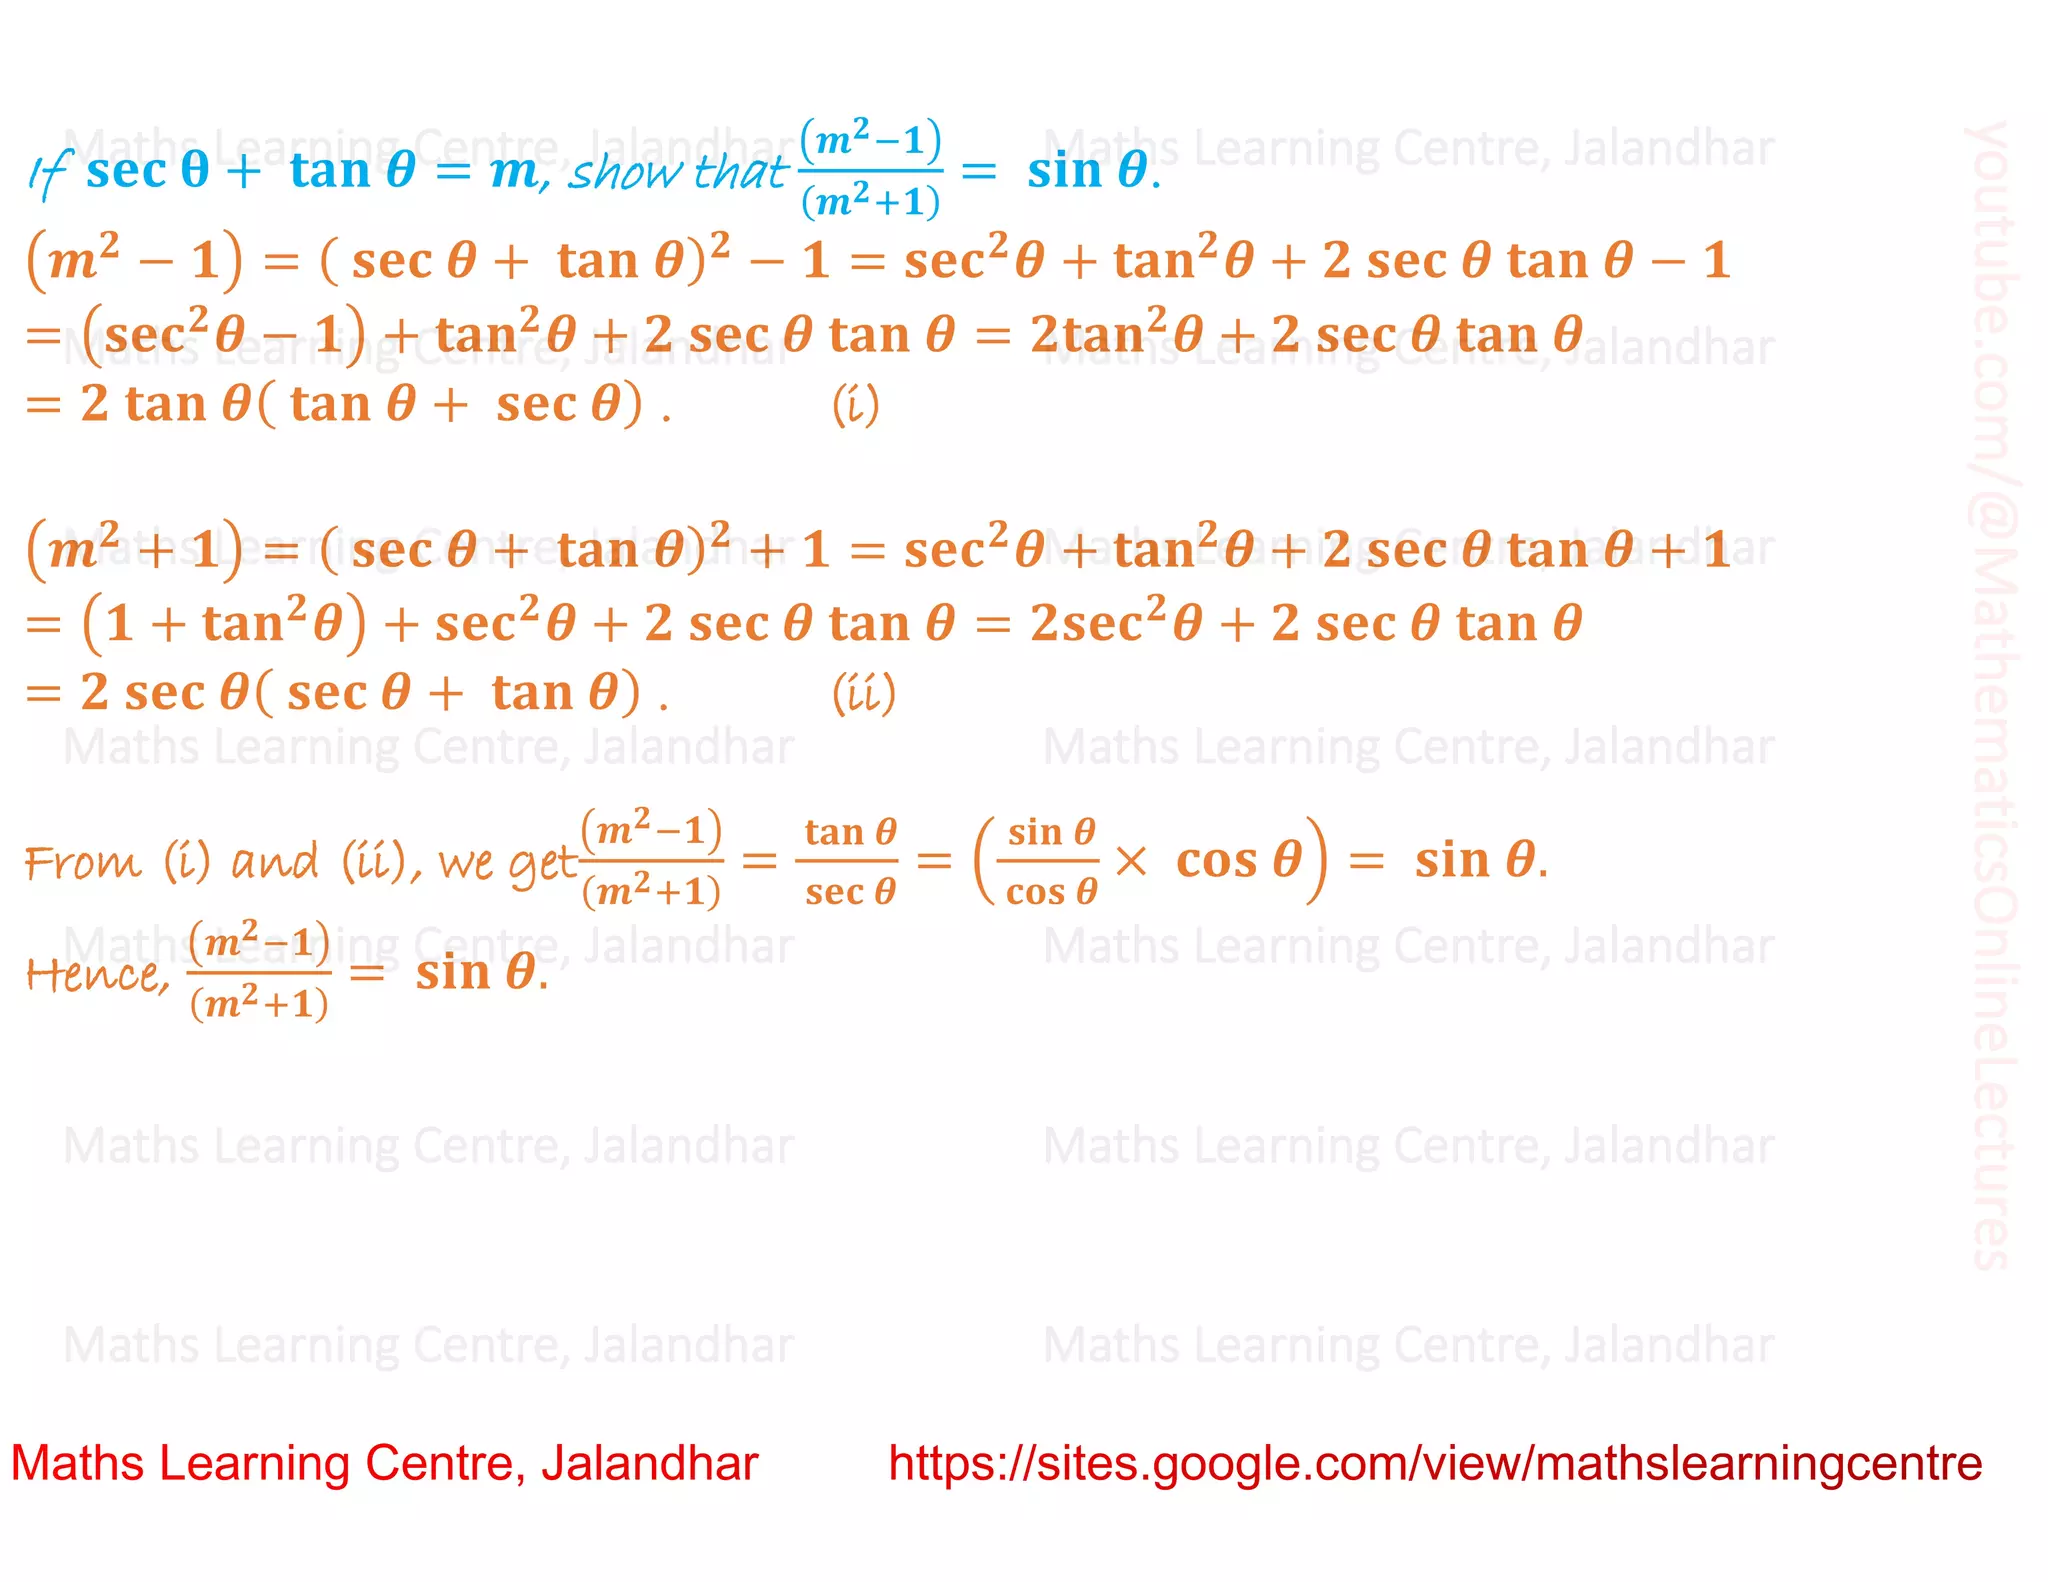 If sec θ + tan θ = m, show that (m²−1)/(m²+1) = sin θ.
(m² − 1) = ( sec θ + tan θ)² − 1 = sec²θ + tan²θ + 2 sec θ tan θ − 1
= (sec²θ − 1) + tan²θ + 2 sec θ tan θ = 2tan²θ + 2 sec θ tan θ
= 2 tan θ( tan θ + sec θ) . (i)
(m² + 1) = ( sec θ + tan θ)² + 1 = sec²θ + tan²θ + 2 sec θ tan θ + 1
= (1 + tan²θ) + sec²θ + 2 sec θ tan θ = 2sec²θ + 2 sec θ tan θ
= 2 sec θ( sec θ + tan θ) . (ii)
From (i) and (ii), we get (m²−1)/(m²+1) = tan θ/sec θ = (sin θ/cos θ × cos θ) = sin θ.
Hence, (m²−1)/(m²+1) = sin θ.
Maths Learning Centre, Jalandhar https://sites.google.com/view/mathslearningcentre
Maths Learning Centre, Jalandhar Maths Learning Centre, Jalandhar
Maths Learning Centre, Jalandhar Maths Learning Centre, Jalandhar
Maths Learning Centre, Jalandhar Maths Learning Centre, Jalandhar
Maths Learning Centre, Jalandhar Maths Learning Centre, Jalandhar
Maths Learning Centre, Jalandhar Maths Learning Centre, Jalandhar
Maths Learning Centre, Jalandhar Maths Learning Centre, Jalandhar
Maths Learning Centre, Jalandhar Maths Learning Centre, Jalandhar
youtube.com/@MathematicsOnlineLectures